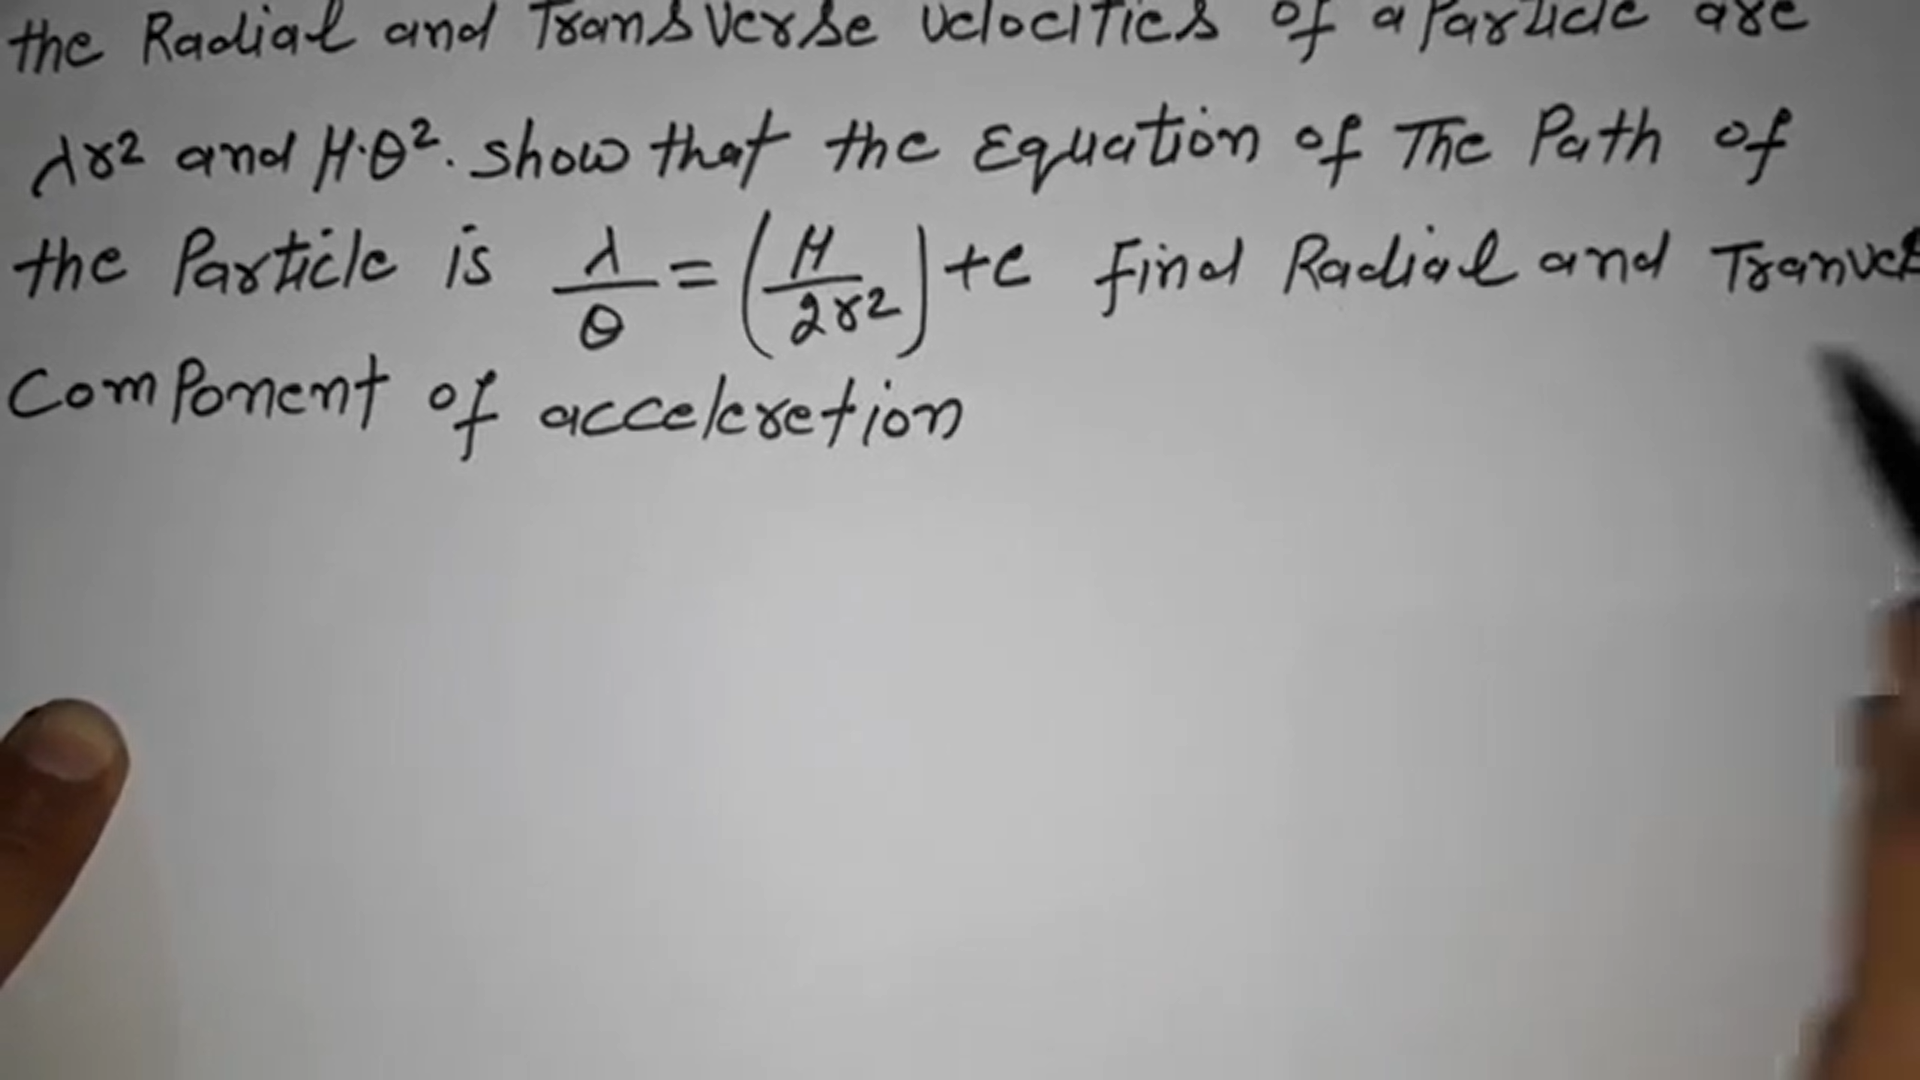 the Radial and Transverse velocities of a Particle are
λr² and μ·θ². show that the Equation of The Path of
the Particle is λ/θ = (μ/2r²) + c find Radial and Tranves
Component of acceleretion